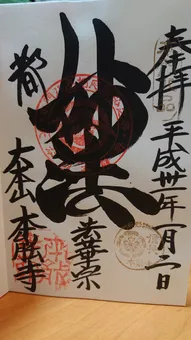 奉拝 平成卅一年一月二日
妙法
法華宗
都
大本山 本能寺